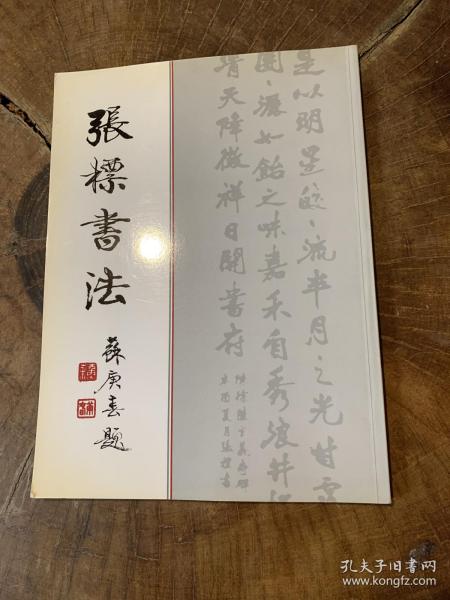 張標書法
蘇庚春題
是以明星皎皎流半月之光甘露
團團瀼如飴之味嘉禾自秀浪井
清天降徵祥日開書府
孔夫子旧书网
www.kongfz.com